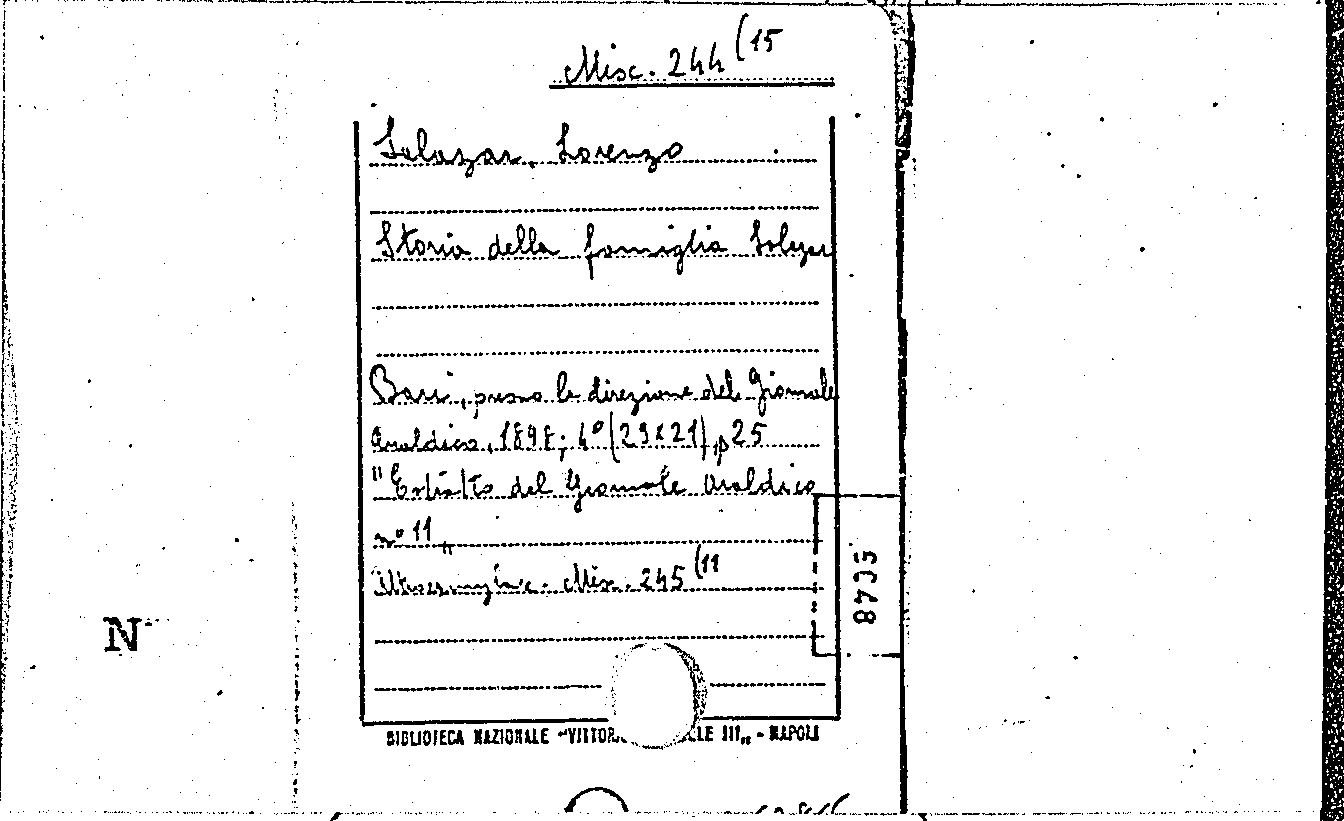 Misc. 244 (15
Salazar, Lorenzo
Storia della famiglia Salazar
Bari, presso la direzione del Giornale
Araldico, 1898; 4° (29x21), p 25
"Estratto del Giornale Araldico
n° 11„
Misc. 245 (11
8705
N
BIBLIOTECA NAZIONALE "VITTOR LE III„ - NAPOLI